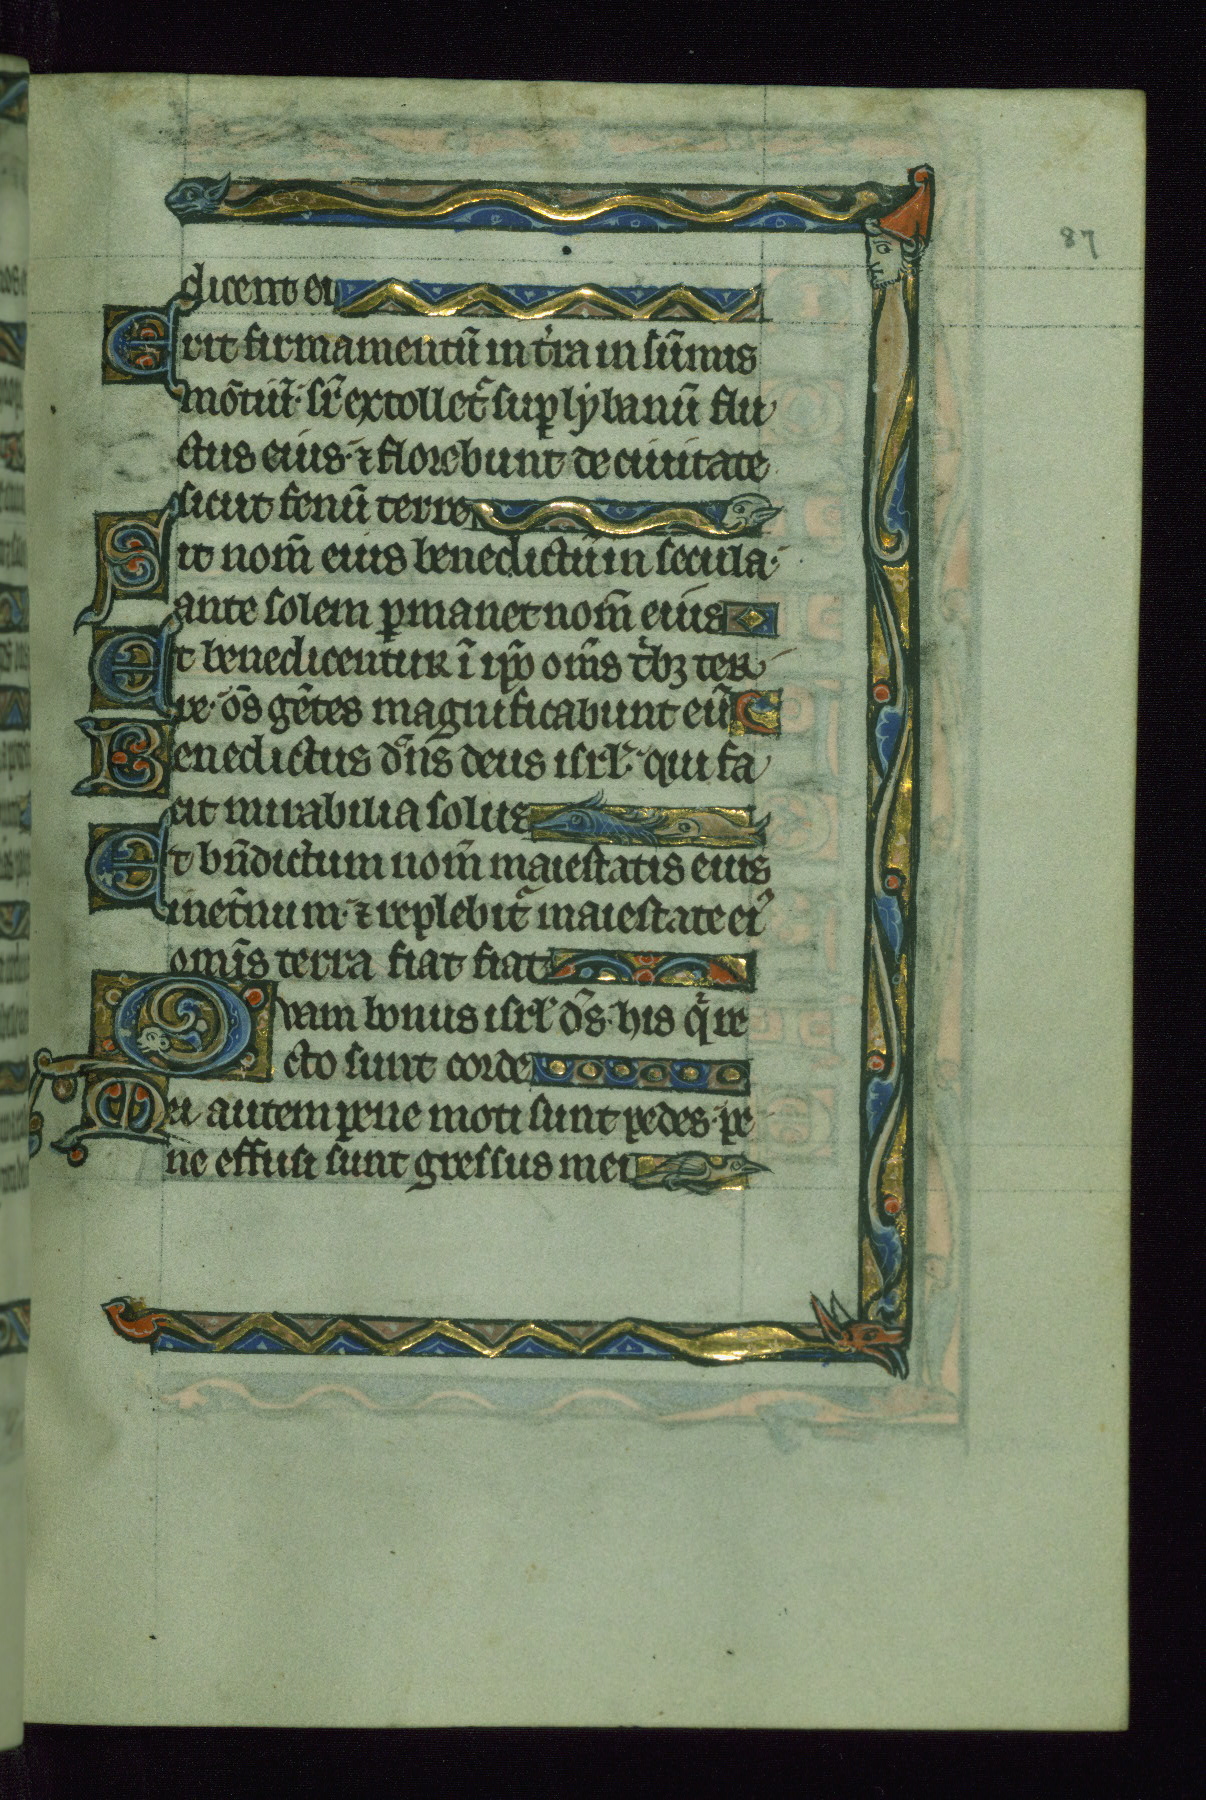 87
dicent ei
Erit firmamentũ in t̾ra in sũmis
mõtiũ· sr̃ extollet᷑ sup̱ lybanũ flu
ctus eius· ⁊ florebunt de ciuitate
sicut fenũ terre
Sit nom̃ eius benedictũ in secula·
ante solem ꝑmanet nom̃ eius
Et benedicentur ĩ ip̃o om̃s t̾bꝫ ter
re· õs gẽtes magnificabunt eũ
Benedictus dñs deus isrl̃· qui fa
cit mirabilia solus
Et bñdictum nom̃ maiestatis eius
inet̃num· ⁊ replebit᷑ maiestate eiꝰ
omĩs terra fiat fiat
Quam bonus isrl̃ d̃s· his q̾ re
cto sunt corde
Mei autem pene moti sunt pedes· pe
ne effusi sunt gressus mei